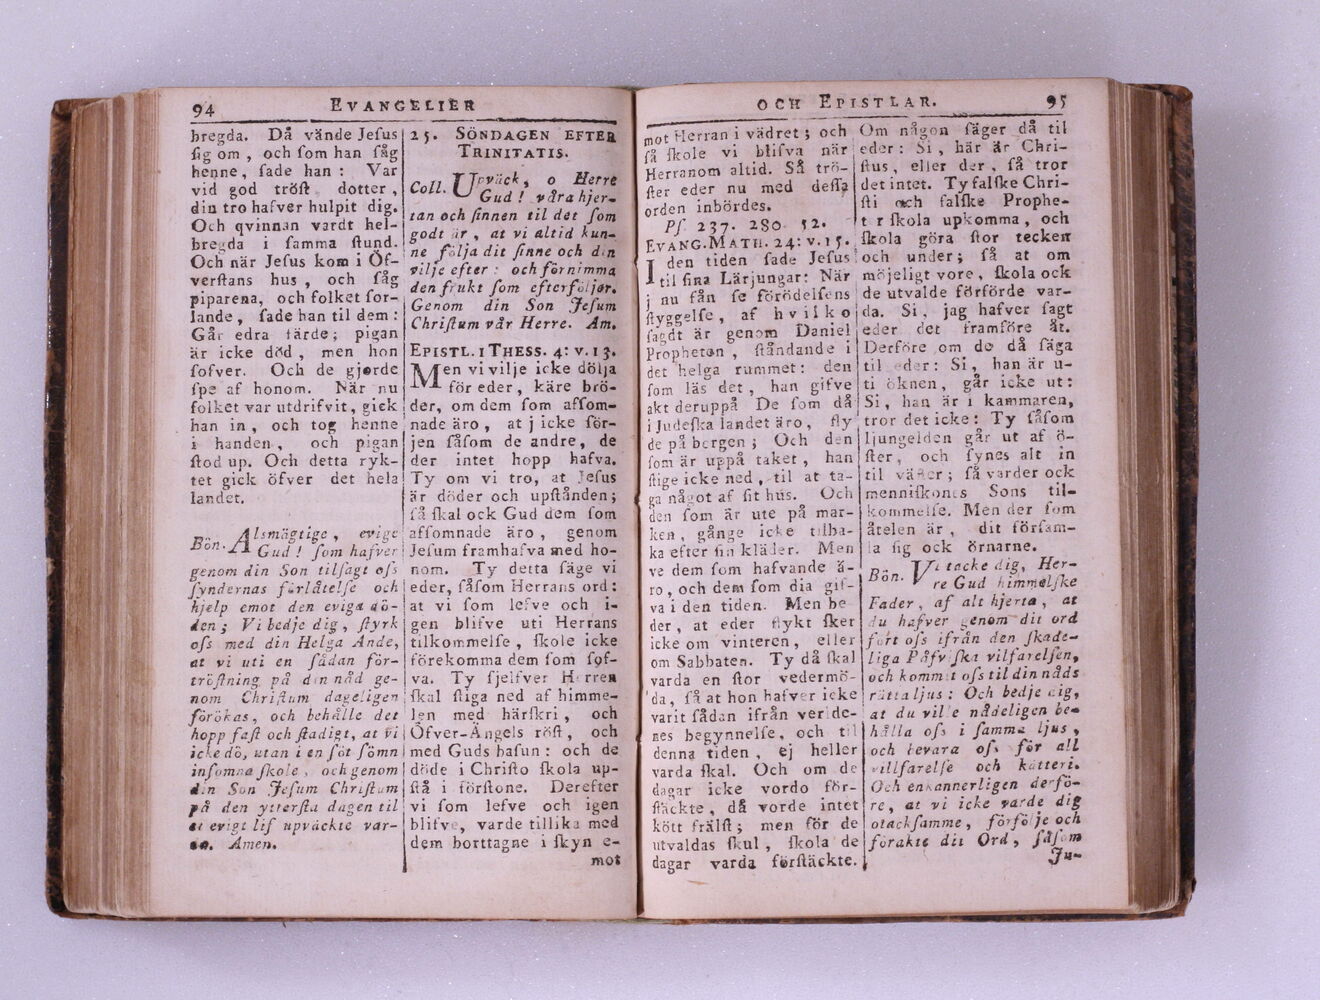 94 EVANGELIER
bregda. Då vände Jeſus
ſig om, och ſom han ſåg
henne, ſade han: Var
vid god tröſt dotter,
din tro hafver hulpit dig.
Och qvinnan vardt hel-
bregda i ſamma ſtund.
Och när Jeſus kom i Öf-
verſtans hus, och ſåg
piparena, och folket ſor-
lande, ſade han til dem:
Går edra färde; pigan
är icke död, men hon
ſofver. Och de gjorde
ſpe af honom. När nu
folket var utdrifvit, gick
han in, och tog henne
i handen, och pigan
ſtod up. Och detta ryk-
tet gick öfver det hela
landet.
Bön. Alsmägtige, evige
Gud! ſom hafver
genom din Son tilſagt oſs
ſyndernas förlåtelſe och
hjelp emot den eviga dö-
den; Vi bedje dig, ſtyrk
oſs med din Helga Anda,
at vi uti en ſådan för-
tröſtning på din nåd ge-
nom Chriſtum dageligen
förökas, och behålle det
hopp faſt och ſtadigt, at vi
icke dö, utan i en ſöt ſömn
inſomna ſkole, och genom
din Son Jeſum Chriſtum
på den ytterſta dagen til
et evigt lif upväckte var-
da. Amen.
25. SÖNDAGEN EFTER
TRINITATIS.
Coll. Upväck, o Herre
Gud! våra hjer-
tan och ſinnen til det ſom
godt är, at vi altid kun-
ne följa dit ſinne och din
vilje efter: och förnimma
den frukt ſom efterföljer.
Genom din Son Jeſum
Chriſtum vår Herre. Am.
EPISTL. 1 THESS. 4: v. 13.
Men vi vilje icke dölja
för eder, käre brö-
der, om dem ſom afſom-
nade äro, at j icke ſör-
jen ſåſom de andre, de
der intet hopp hafva.
Ty om vi tro, at Jeſus
är döder och upſtånden;
ſå ſkal ock Gud dem ſom
afſomnade äro, genom
Jeſum framhafva med ho-
nom. Ty detta ſäge vi
eder, ſåſom Herrans ord:
at vi ſom lefve och i-
gen blifve uti Herrans
tilkommelſe, ſkole icke
förekomma dem ſom ſof-
va. Ty ſjelfver Herren
ſkal ſtiga ned af himme-
len med härſkri, och
Öfver-Ängels röſt, och
med Guds baſun: och de
döde i Chriſto ſkola up-
ſtå i förſtone. Derefter
vi ſom lefve och igen
blifve, varde tillika med
dem borttagne i ſkyn e-
mot
OCH EPISTLAR. 95
mot Herran i vädret; och
ſå ſkole vi blifva när
Herranom altid. Så trö-
ſter eder nu med deſſa
orden inbördes.
Pſ. 237. 280. 52.
EVANG. MATH. 24: v. 15.
I den tiden ſade Jeſus
til ſina Lärjungar: När
j nu fån ſe förödelſens
ſtyggelſe, af hvilko
ſagdt är genom Daniel
Propheten, ſtåndande i
det helga rummet: den
ſom läs det, han gifve
akt deruppå. De ſom då
i Judeſka landet äro, fly
de på bergen; Och den
ſom är uppå taket, han
ſtige icke ned, til at ta-
ga något af ſit hus. Och
den ſom är ute på mar-
ken, gånge icke tilba-
ka efter ſin kläder. Men
ve dem ſom hafvande ä-
ro, och dem ſom dia gif-
va i den tiden. Men be-
der, at eder flykt ſker
icke om vinteren, eller
om Sabbaten. Ty då ſkal
varda en ſtor vedermö-
da, ſå at hon hafver icke
varit ſådan ifrån verlde-
nes begynnelſe, och til
denna tiden, ej heller
varda ſkal. Och om de
dagar icke vordo för-
ſtäckte, då vorde intet
kött frälſt; men för de
utvaldas ſkul, ſkola de
dagar varda förſtäckte.
Om någon ſäger då til
eder: Si, här är Chri-
ſtus, eller der, ſå tror
det intet. Ty falſke Chri-
ſti och falſke Prophe-
ter ſkola upkomma, och
ſkola göra ſtor tecken
och under; ſå at om
möjeligt vore, ſkola ock
de utvalde förförde var-
da. Si, jag hafver ſagt
eder det framföre åt.
Derföre om de då ſäga
til eder: Si, han är u-
ti öknen, går icke ut:
Si, han är i kammaren,
tror det icke: Ty ſåſom
ljungelden går ut af ö-
ſter, och ſynes alt in
til väſter; ſå varder ock
menniſkones Sons til-
kommelſe. Men der ſom
åtelen är, dit förſam-
la ſig ock örnarne.
Bön. Vi tacke dig, Her-
re Gud himmelſke
Fader, af alt hjerta, at
du hafver genom dit ord
fört oſs ifrån den ſkade-
liga Påfviſka vilfarelſen,
och kommit oſs til din nåds
rätta ljus: Och bedje dig,
at du ville nådeligen be-
hålla oſs i ſamma ljus,
och bevara oſs för all
villfarelſe och kätteri.
Och enkannerligen derfö-
re, at vi icke varde dig
otackſamme, förfölje och
förakte dit Ord, ſåſom
Ju-